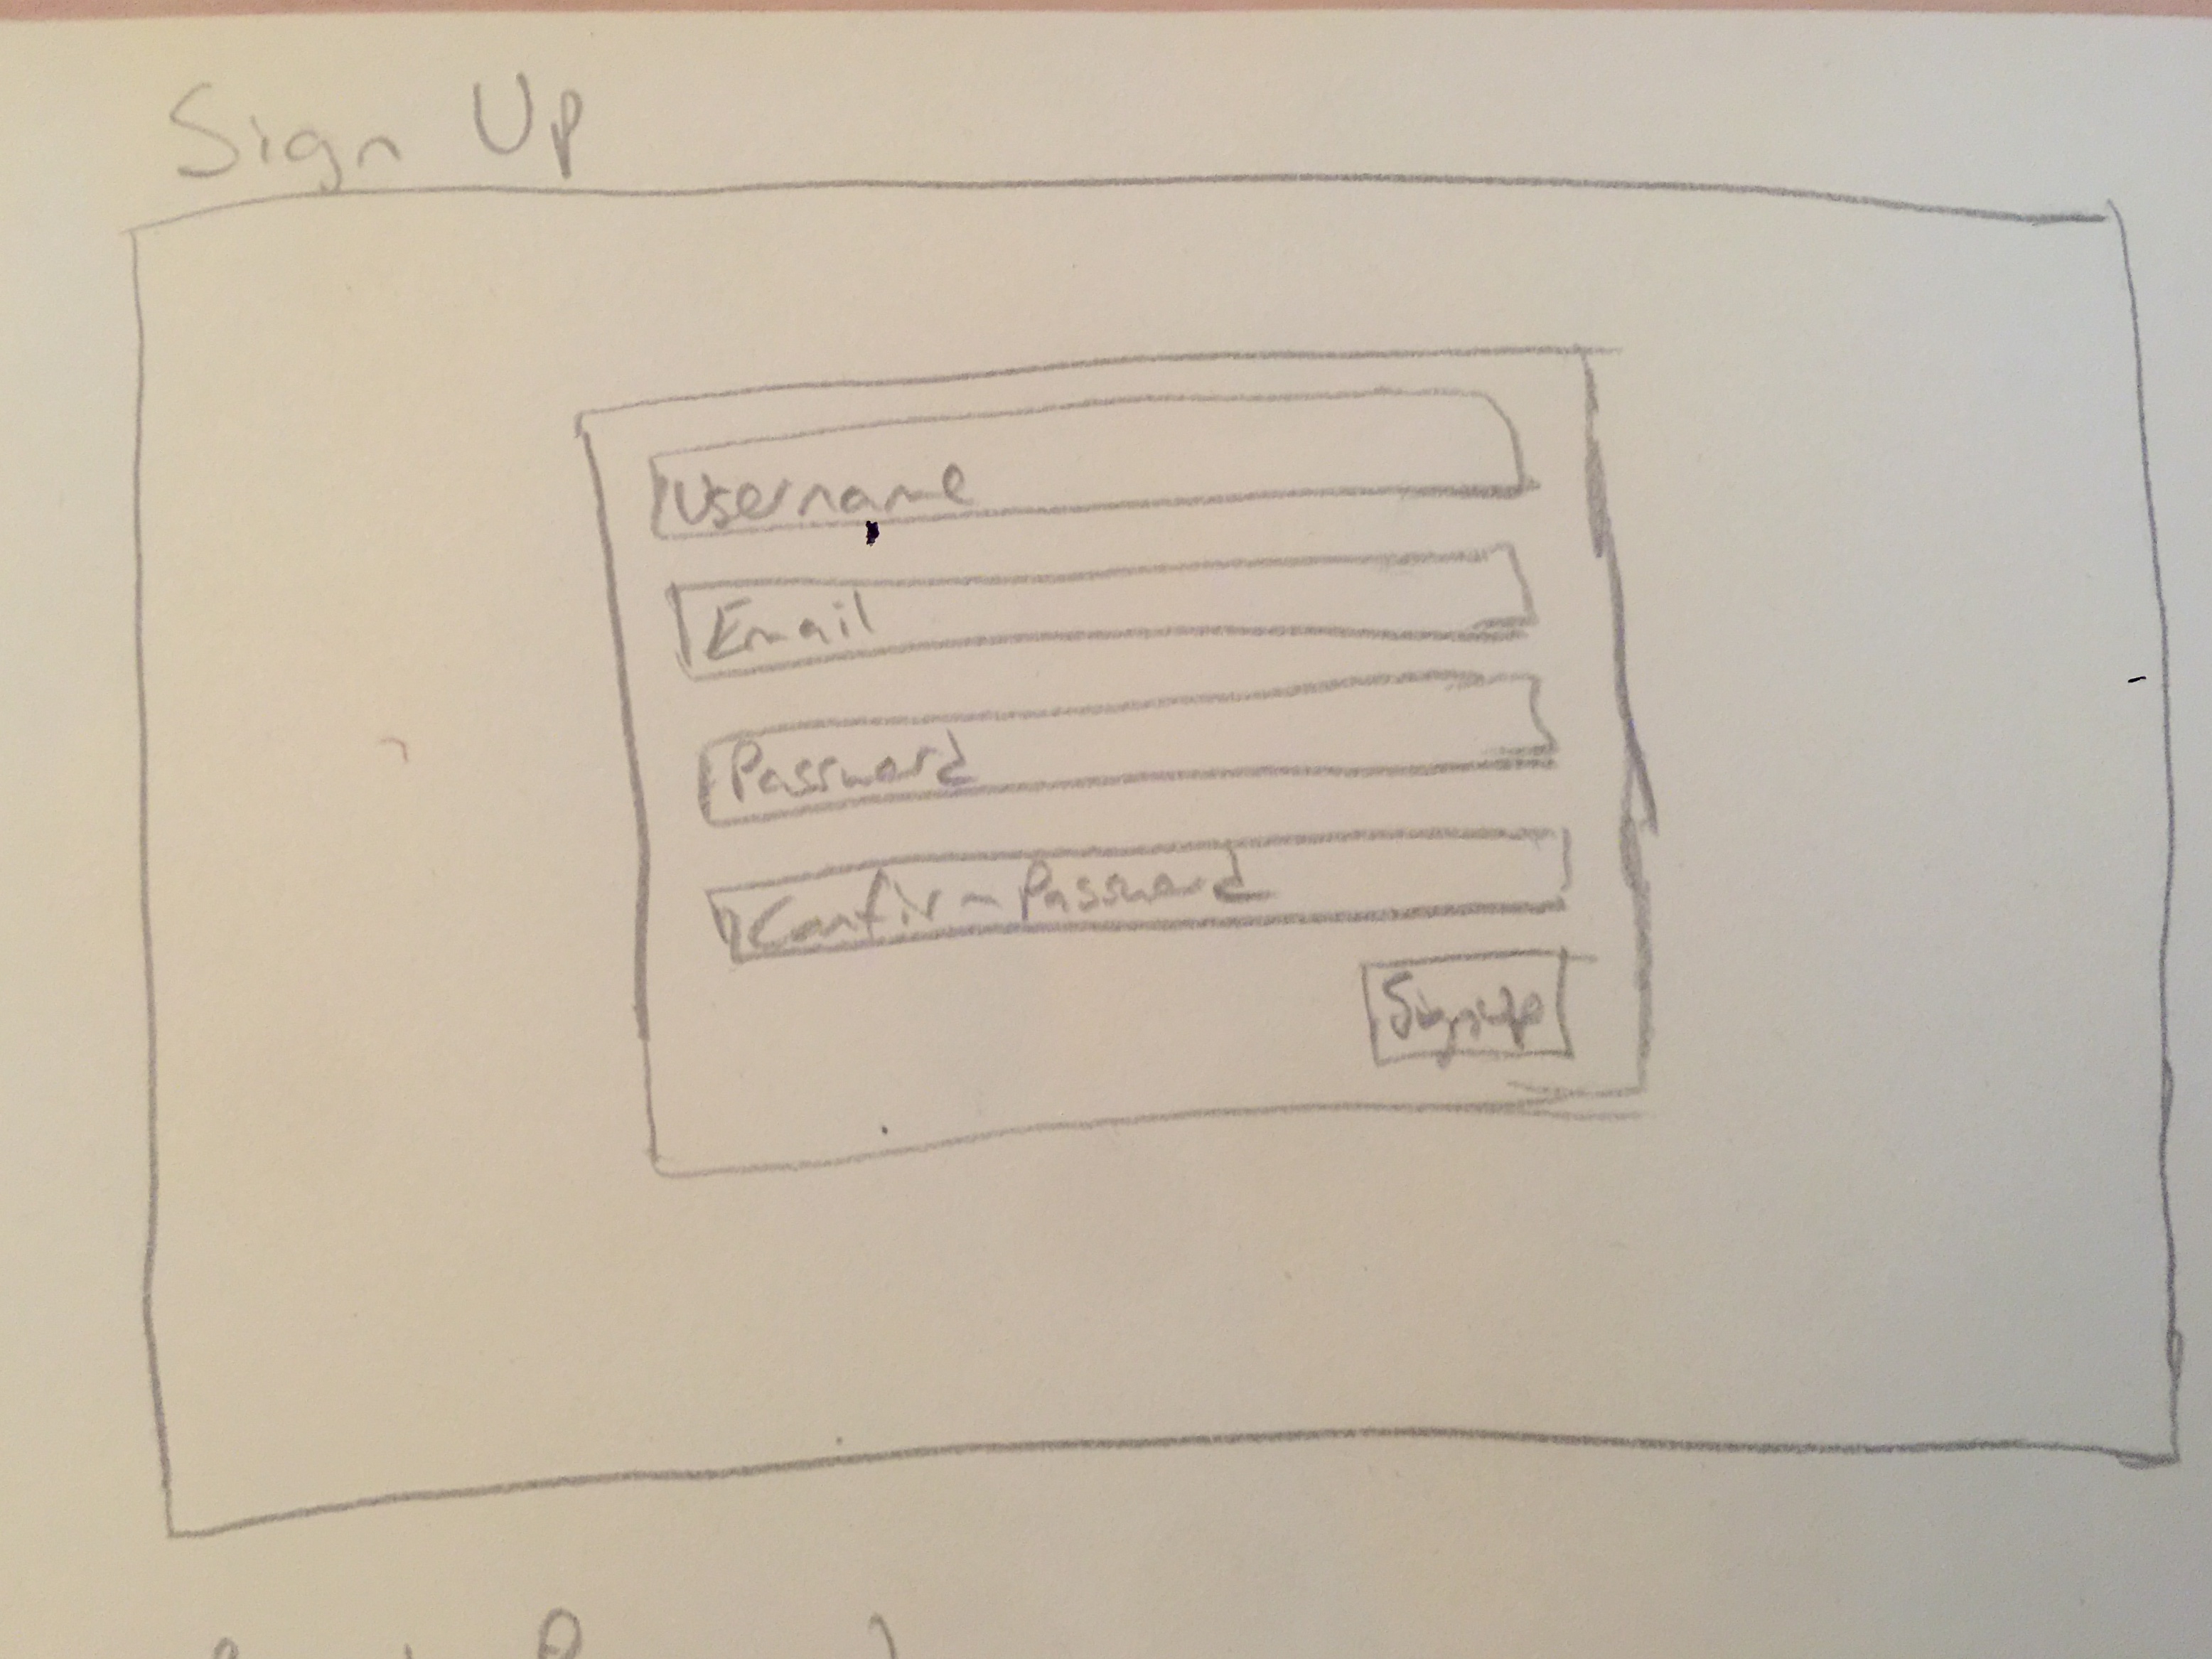 Sign Up
Username
Email
Password
Confirm Password
Signup